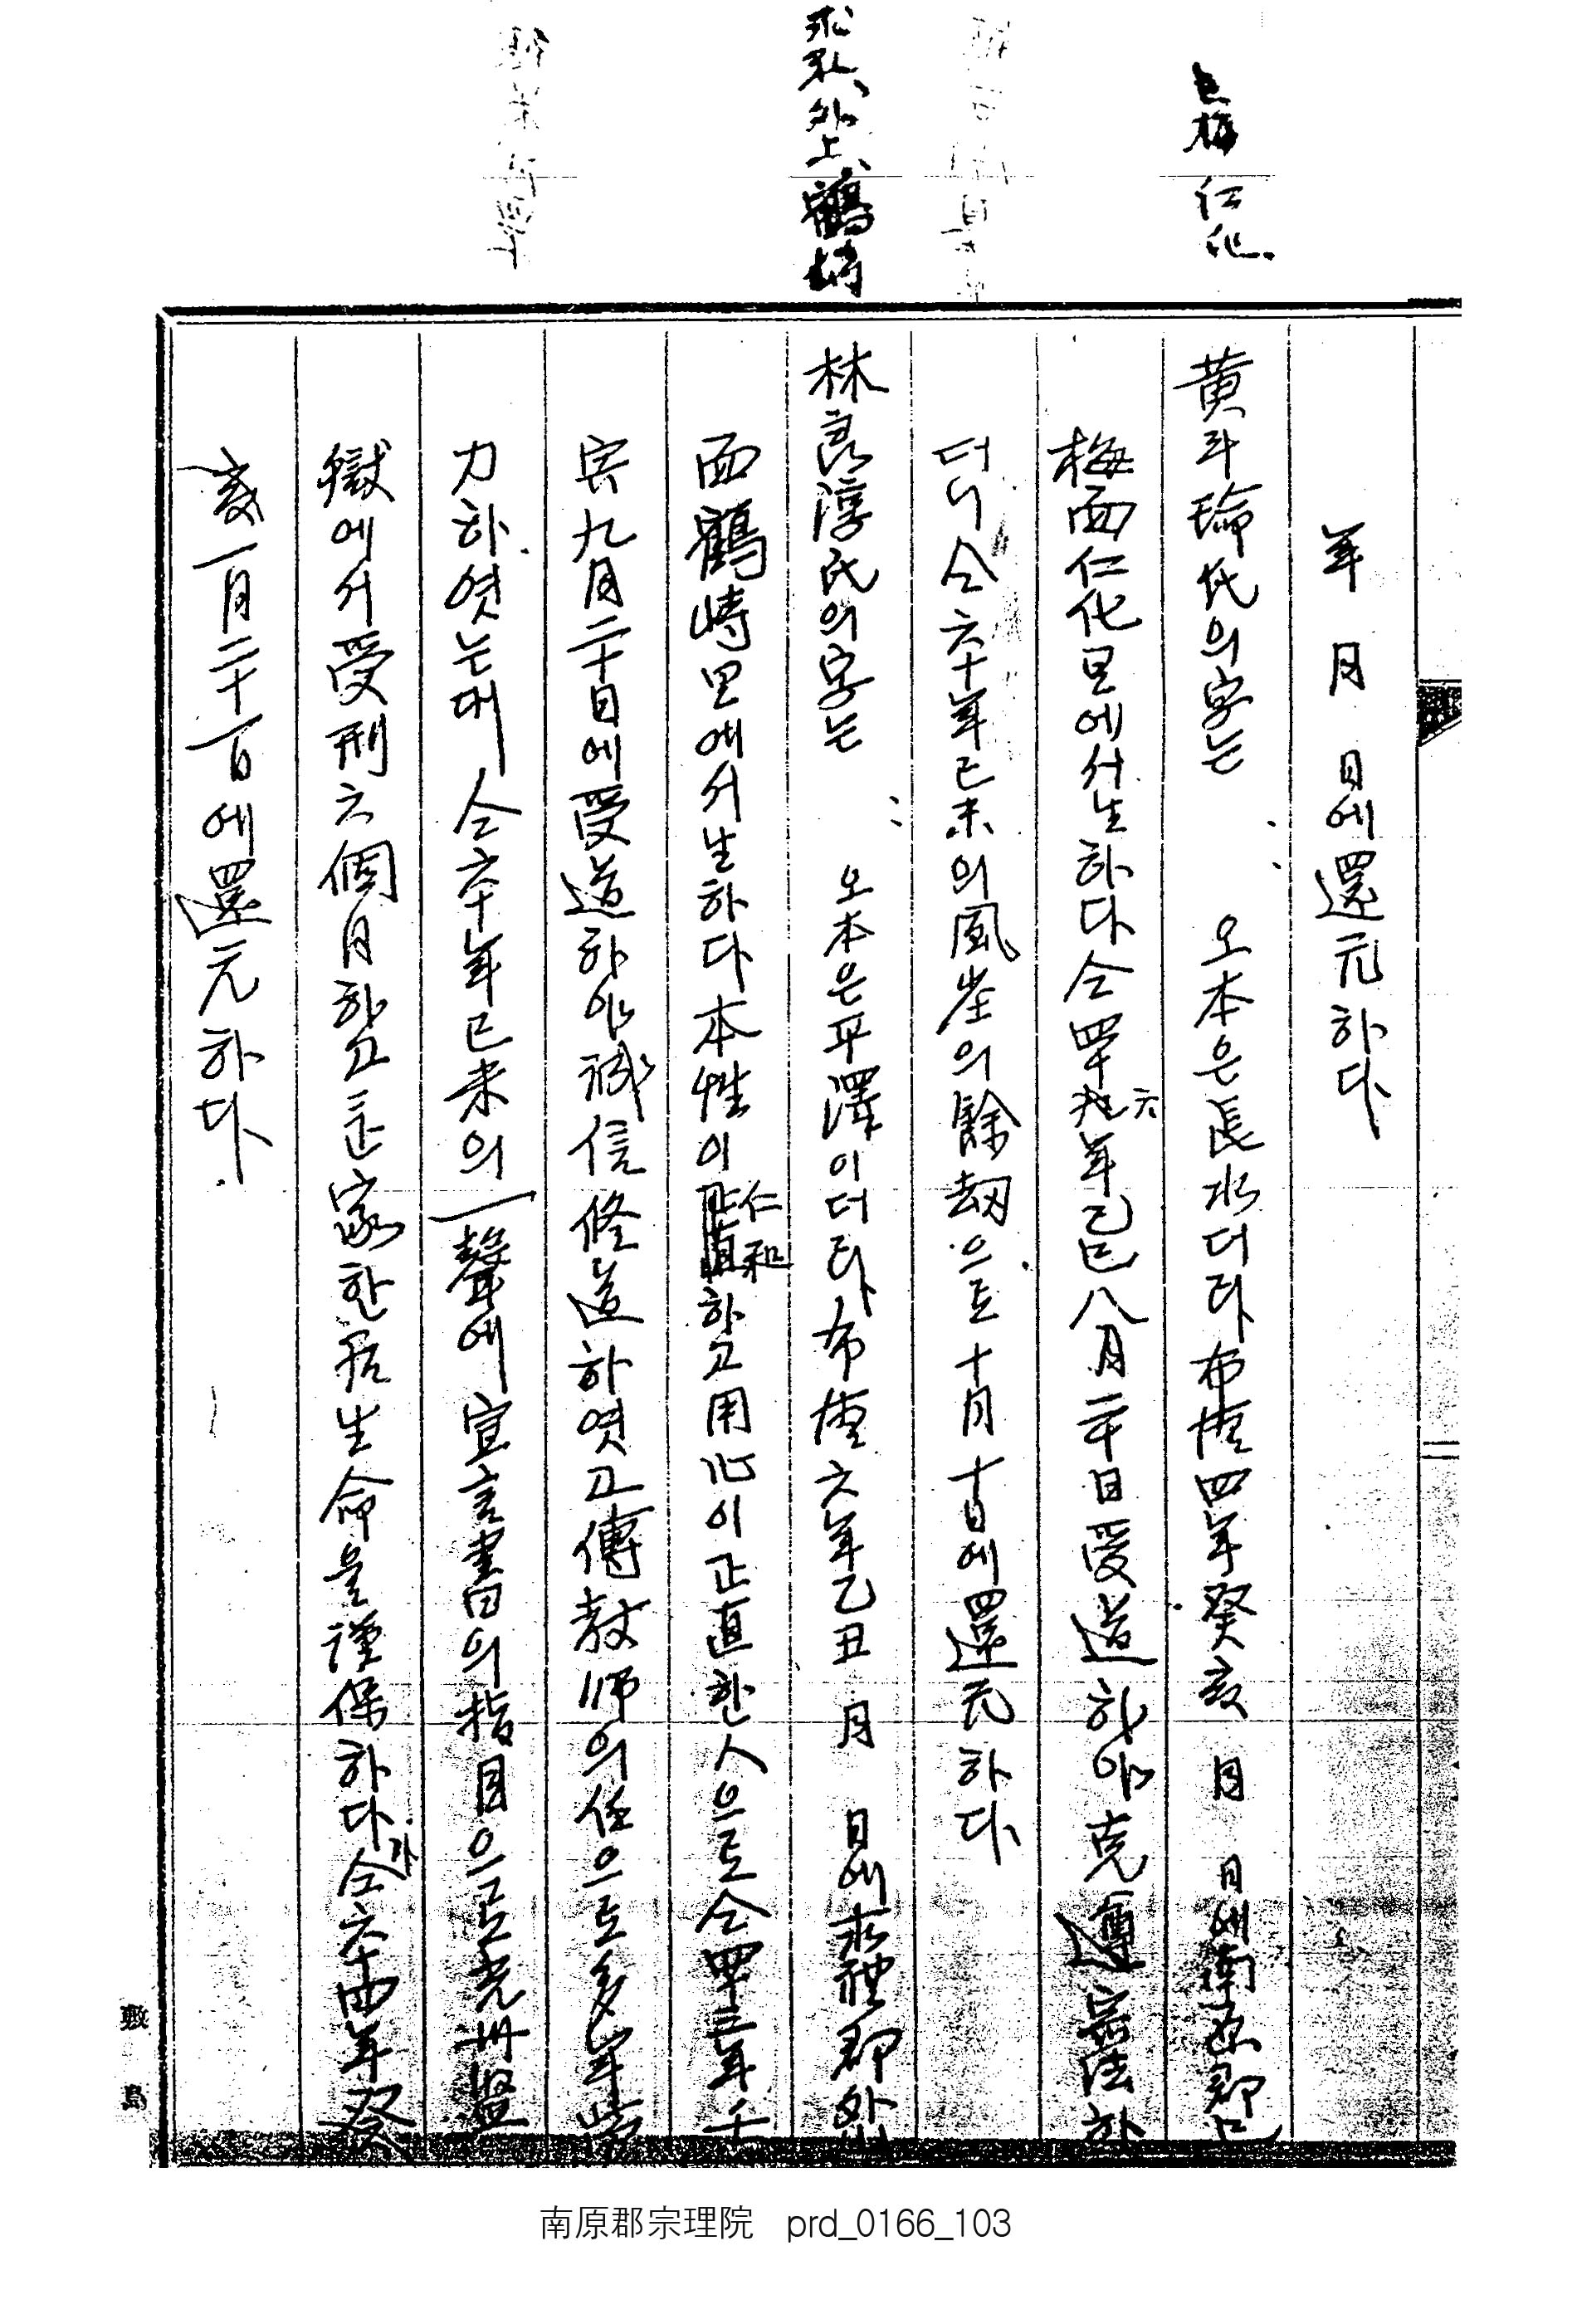 巳梅 仁化.
求礼、外上、鶴峙
年 月 日에還元하다
黃斗瑜氏의字는 오本은長水더라布德四年癸亥 月 日에南原郡巳
梅面仁化里에서生하다仝四十六年乙巳八月二十日受道하야克遵 法하
더니仝六十年己未의風崖의餘劫으로十月十日에還元하다
林良淳氏의字는 오本은平澤이더라布德六年乙丑 月 日에求禮郡外山
面鶴峙里에서生하다本性이仁和하고用心이正直한人으로仝四十三年壬
寅九月二十日에受道하야誠信修道하엿고傳敎師의任으로多年勞
力하엿는대仝六十年己未의一聲에宣言書의指目으로光州監
獄에서受刑六個月하고 家한后生命을謹保하다가仝六十四年癸
亥一月二十一日에還元하다.
敷島
南原郡宗理院 prd_0166_103